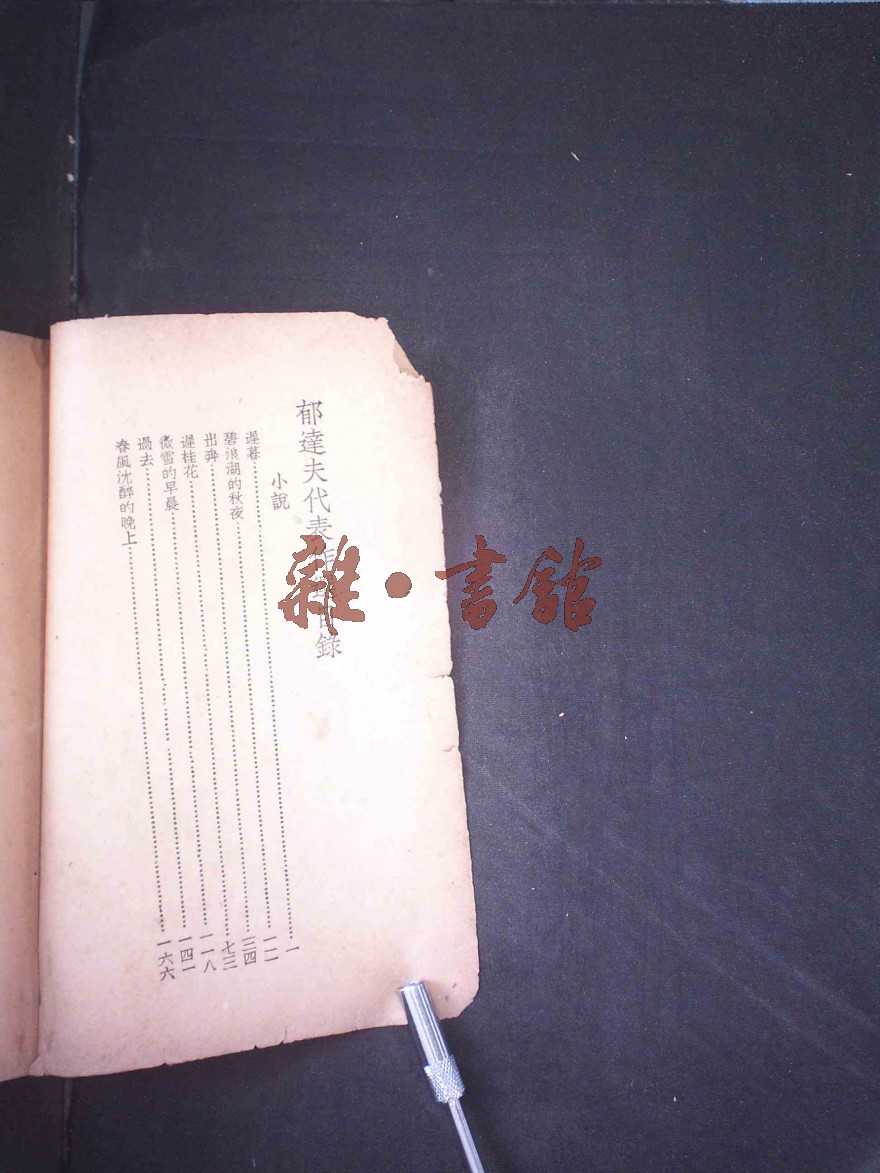 郁達夫代表作目錄
小說
遲暮……一
碧浪湖的秋夜……
出奔……三四
遲桂花……七三
微雪的早晨……一一八
過去……一四一
春風沈醉的晚上……一六六
雜·書館